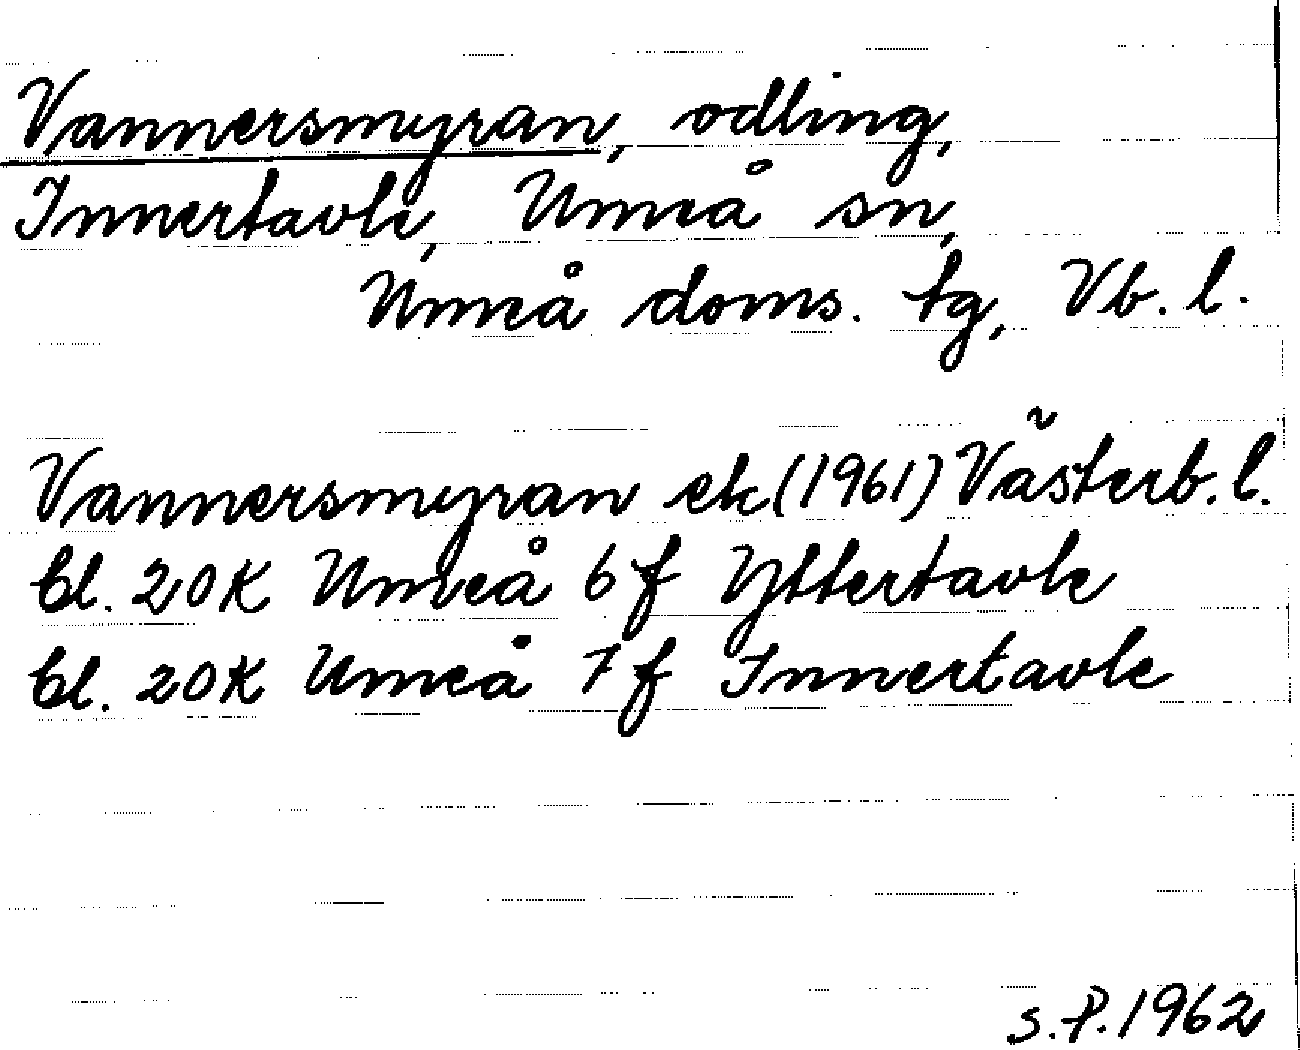 Vannersmyran, odling,
Innertavle, Umeå sn,
Umeå doms. tg, Vb. l.
Vannersmyran ek (1961) Västerb. l.
bl. 20K Umeå 6f Yttertavle
bl. 20K Umeå 7f Innertavle
S.P. 1962